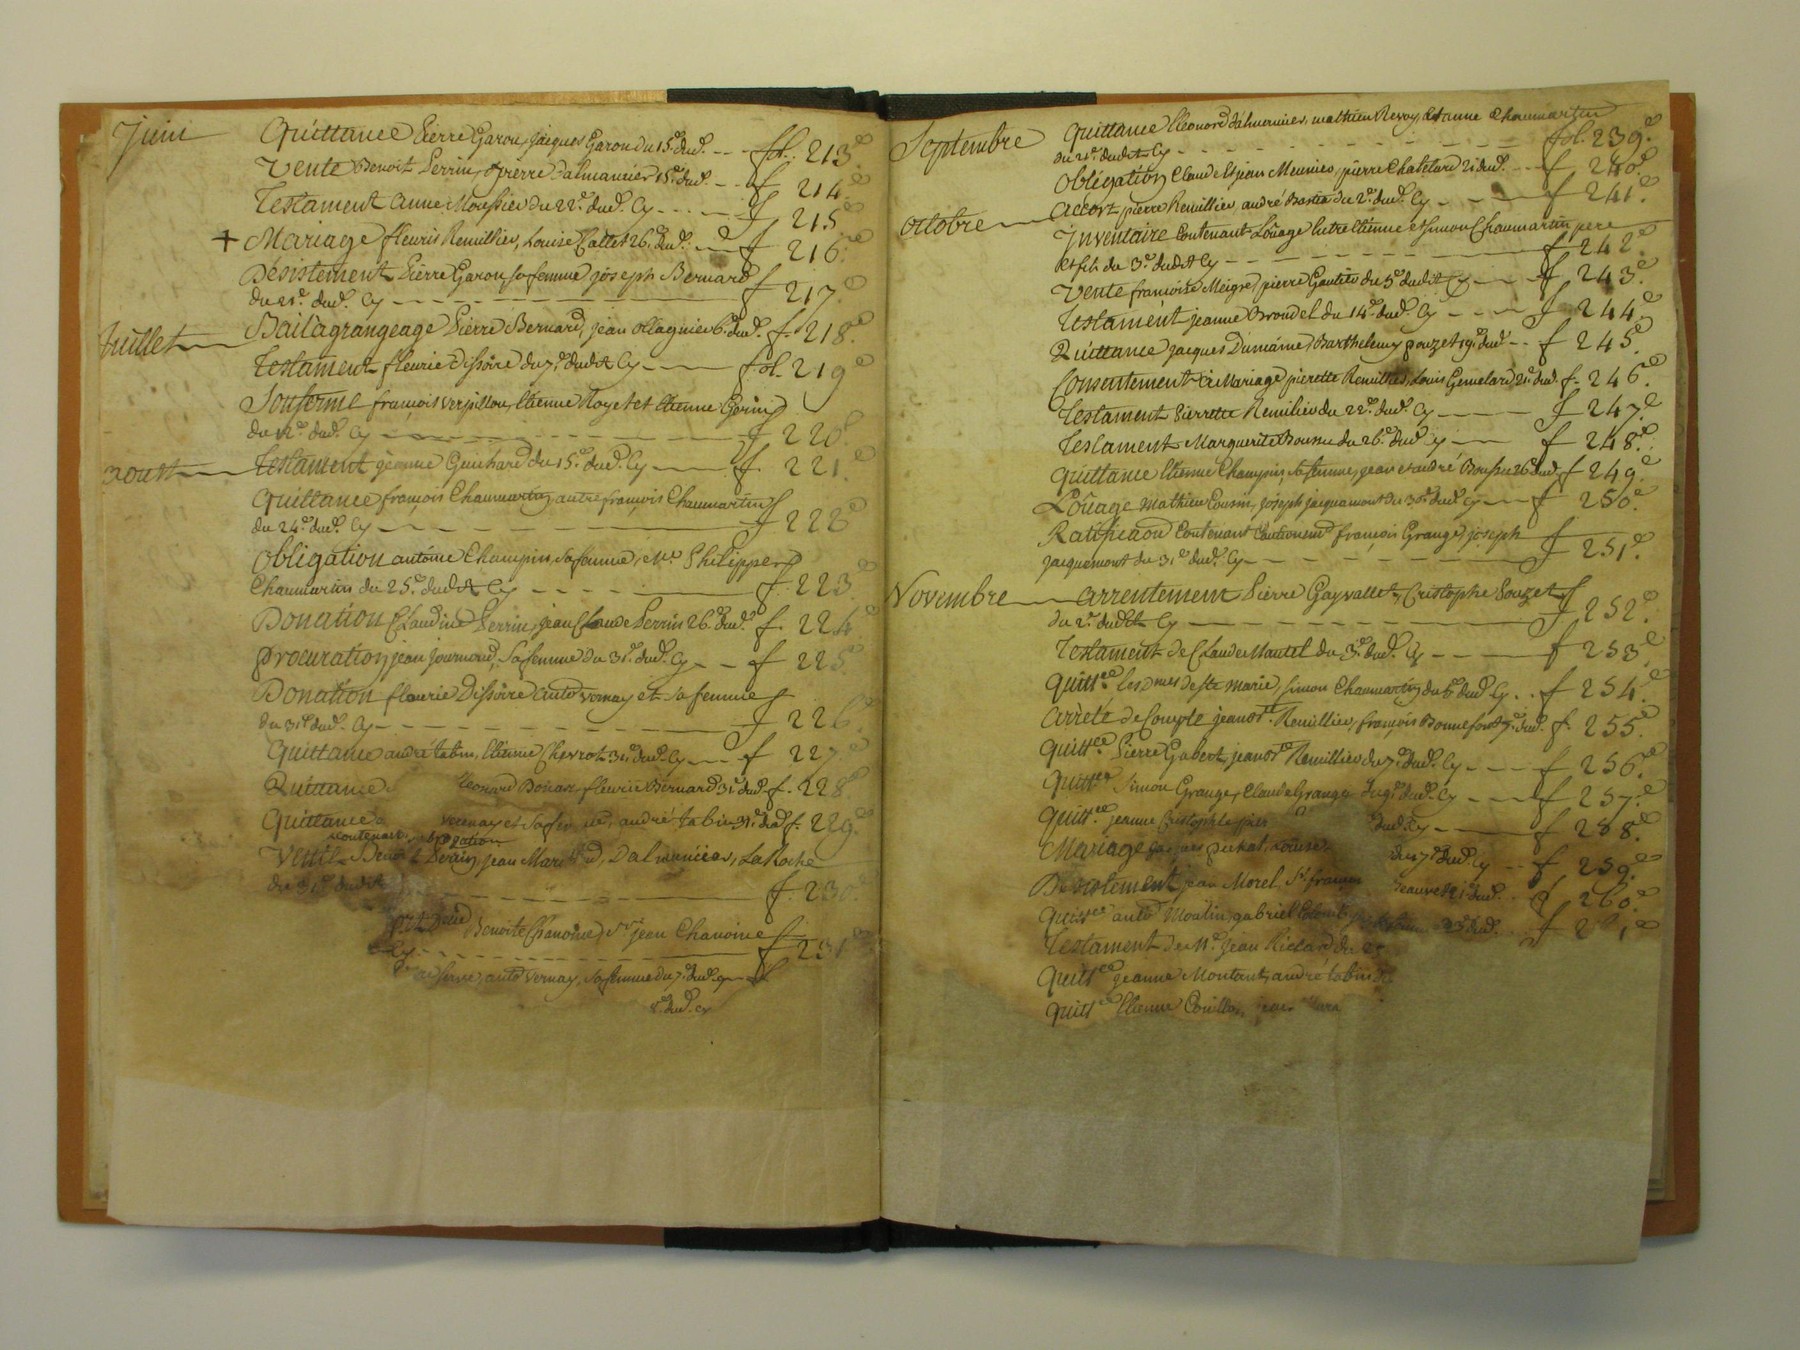 Juin Quittance Pierre Garon, jacques Garon du 15.e dud.t fol. 213.e
Vente Benoit Perrin, & pierre Dalmanciér 15.e dud.t f 214.e
Testament anne Moussier du 22.e dud.t Cy f 215.e
+ Mariage fleuris Remillier, Louise Callet 26.e dud.t f 216.e
Desistement Pierre Garon, sa femme, joseph Bernard
du 28.e dud.t Cy f 217.e
Juillet Bail a grangeage Pierre Bernard, jean ollagnier 6.e dud.t f. 218.e
Testament fleurie dissoire du 7.e dudit Cy fol. 219.e
Sousferme françois verpillou, Etienne Noyet et Etienne Gerin
du 12.e dud.t Cy f 220.e
aoust Testament jeanne Guichard du 15.e dud.t Cy f. 221.e
Quittance françois Chaumartin, autre françois Chaumartin
du 24.e dud.t Cy f 222.e
Obligation antoine Champin, sa femme, M.e Philippe
Chaumartin du 25.e dudit Cy f. 223.
Donation Claudine Perrin, jean Claude Perrin 26.e dud.t f. 224.e
procuration jean journoud, sa femme du 31.e dud.t Cy f 225.e
Donation fleurie Dissoire anto.e vernay et sa femme
du 31.e dud.t Cy f 226.e
Quittance andré tabin, Etienne Chevrot 31.e dud.t Cy f 227.e
Quittance Leonard Donat, fleurie Bernard 31.e dud.t f. 228.e
Quittance vernay et sa femme, andré tabin 31.e dud.t f. 229.e
contenant subrogation
Vente Benoit Perrin, jean Dalmancier, La Roche
du 31.e dudit f. 230.e
Benoite Chanoine, S.r jean Chanoine
Cy f 231.e
anto.e vernay, sa femme du 7.e dud.t cy f
8.e dud.t cy
Septembre Quittance Eleonord dalmencier, mathieu Revoy, et anne Chaumartin
du 21.e dudit Cy fol. 239.e
Obligation Claude et jean Meunier, pierre Chatelard 21.e dud.t f 240.e
octobre accort pierre Remillier, andré Bastin du 2.e dud.t Cy f 241.e
Inventaire Contenant Loüage Entre Etienne et simon Chaumartin pere
et fils du 3.e dudit Cy f 242.e
Vente françoise Meigre, pierre Gautier du 5.e dudit Cy f 243.e
Testament jeanne Brondel du 14.e dud.t Cy f 244.e
Quittance jacques Dumaine, Barthelemy pouzet 19.e dud.t f 245.e
Consentement a Mariage pierette Remillier, Louis Gemelard 21.e dud.t f. 246.e
Testament Pierrette Remilier du 22.e dud.t Cy f 247.e
Testament Marguerite Bourne du 26.e dud.t Cy f 248.e
Quittance Etienne Champin, sa femme, jean et andré Boufru 26.e dud.t f 249.e
Loüage Mathieu Cousin, joseph jacquemont du 30.e dud.t cy f 250.e
Ratification Contenant Cautionem.t françois Grange, joseph
jacquemont du 31.e dud.t Cy f 251.e
Novembre arrentement Pierre Gayvallet, Cristophe Pouzet
du 2.e dudit Cy f 252.e
Testament de Claude Mantel du 3.e dud.t Cy f 253.e
Quitt.ce les Dmes de ste marie, simon Chaumartin du 6.e dud.t Cy f 254.e
arrêté de Compte jean Bt.e Remillier, françois Bonnefond 7.e dud.t f. 255.e
Quitt.ce Pierre Gabert, jean Bt.e Remillier du 7.e dud.t Cy f 256.e
Quitt.ce simon Grange, Claude Grange du 9.e dud.t Cy f 257.e
Quitt.ce jeanne Cristophle dud.t Cy f 258.e
Mariage jacques pichat, Louise du 17.e dud.t Cy f 259.e
Desistement jean Morel, S.r françois 21.e dud.t f 260.e
Quitt.ce anto.e Moulin, gabriel Colomb 23.e dud.t f
Testament de M.e jean Riclard du 25
Quitt.ce jeanne Montant, andré tabin
Quitt.ce Etienne Couillon, jean